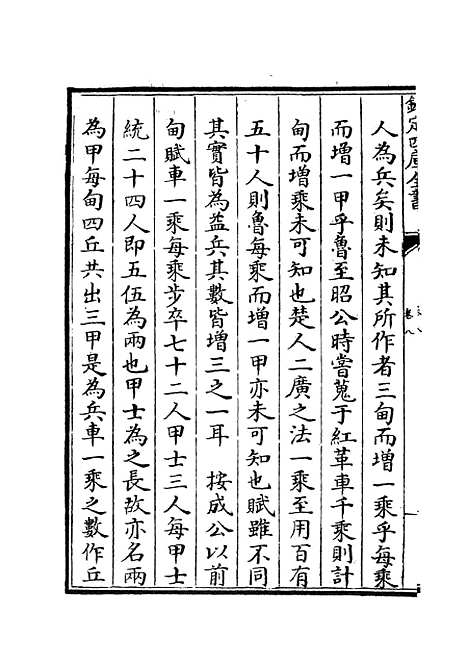 欽定四庫全書
卷八
人為兵矣則未知其所作者三甸而增一乘乎每乘
而增一甲乎魯至昭公時嘗蒐于紅革車千乘則計
甸而增乘未可知也楚人二廣之法一乘至用百有
五十人則魯每乘而增一甲亦未可知也賦雖不同
其實皆為益兵其數皆增三之一耳　按成公以前
甸賦車一乘每乘步卒七十二人甲士三人每甲士
統二十四人即五伍為兩也甲士為之長故亦名兩
為甲每甸四丘共出三甲是為兵車一乘之數作丘